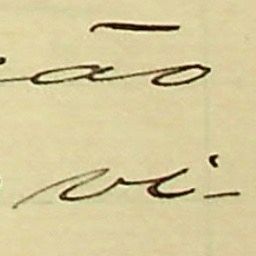 ão
vi-